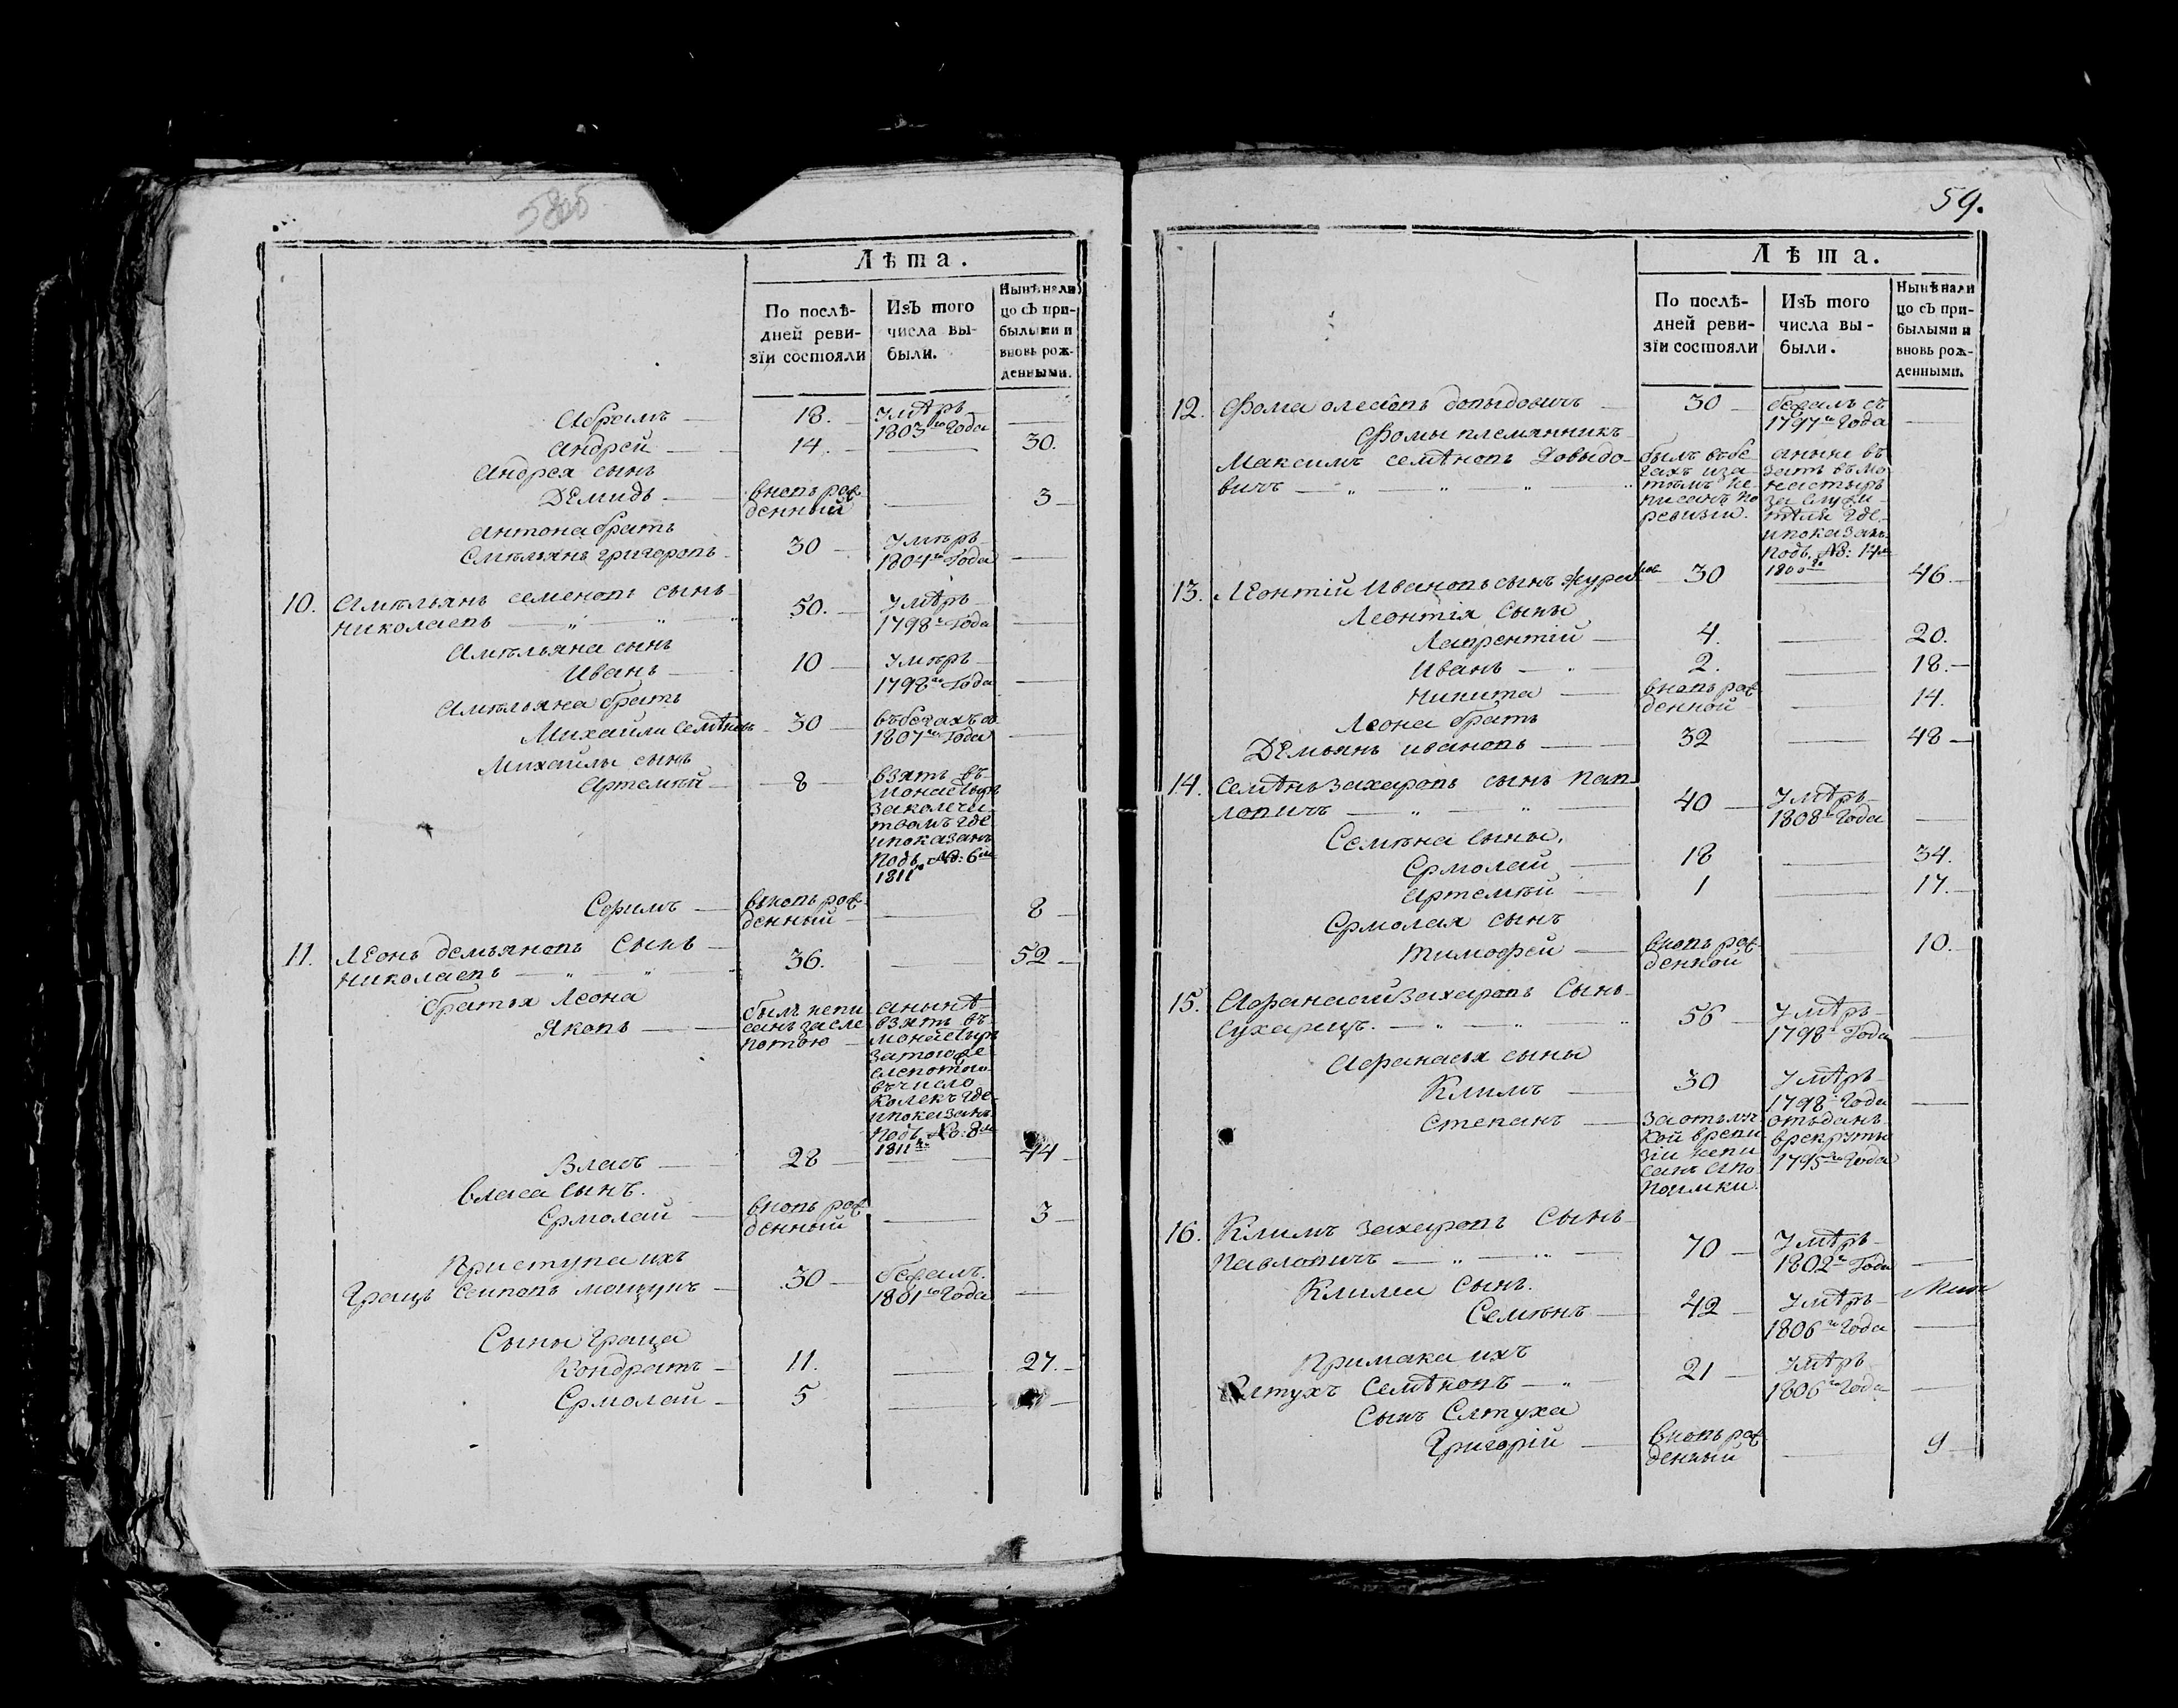 59.
Лѣта.
По послѣ-
дней реви-
зїи состояли
Изъ того
числа вы-
были.
Нынѣ нали
цо съ при-
былыми и
вновь рож-
денными.
Абрамъ 18. Умѣръ
1803го Года
Андрей 14. 30.
Андрея сынъ
Демидъ вновь рож
денный 3
Антона братъ
Емѣльянъ Григоровъ 30 Умѣръ
1804го Года
10. Амѣльянъ Семеновъ сынъ
Николаевъ 50. Умѣръ
1798го Года
Амѣльяна сынъ
Иванъ 10 Умѣръ
1798го Года
Амѣльяна братъ
Михайла Семѣновъ 30 въ бегахъ съ
1807го Года
Михайлы сынъ
Артемѣй 8 взятъ въ
монастырь
где
и показанъ
подъ №: 6м
1811го
Ефимъ вновь рож
денный 8
11. Леонъ Демьяновъ Сынъ
Николаевъ 36. 52
братья Леона
Яковъ былъ непи
санъ за сле
потою
а нынѣ
взятъ въ
монастырь
за тою же
слепотою
въ число
колекъ где
и показанъ
подъ №: 8м
1811го
Власъ 28 44
Власа сынъ.
Ермолай вновь рож
денный 3
Приступа ихъ
30 бежалъ
1801го Года
Кондратъ 11. 27.
Ермолай 5
59.
Лѣта.
По послѣ-
дней реви-
зїи состояли
Изъ того
числа вы-
были.
Нынѣ нали
цо съ при-
былыми и
вновь рож-
денными.
12. Фома Довыдовичъ 30 бежалъ съ
1797го Года
Фомы племянникъ
Максимъ Семѣновъ Довыдо-
вичъ
былъ въ бе
гахъ и за
тѣмъ не
писанъ по
ревизіи.
а нынѣ въ
зятъ въ мо
настырь
за служи
тѣля где
и показанъ
подъ №: 14м
13. Леонтій Ивановъ сынъ 30 46.
Леонтія Сыны
Лаврентій 4. 20.
Иванъ 2. 18.
Никита вновь рож
денной 14.
Леона братъ
Демьянъ Ивановъ 32 48
14. Семѣнъ Захаровъ сынъ Пав-
ловичъ 40 Умѣръ
1808го Года
Семѣна сыны,
Ермолай 18 34.
Артемѣй 1 17.
Ермолая сынъ
Тимофей вновь рож
денной 10.
15. Афанасій Захаровъ Сынъ
Сухарицъ. 56 Умѣръ
1798го Года
Афанасія сыны
Климъ 30 Умѣръ
1798го Года
Степанъ
непи
санъ
отъданъ
в рекруты
1795го Года
16. Климъ Захаровъ Сынъ
Павловичъ 70 Умѣръ
1802го Года
Клима Сынъ.
Семѣнъ 42 Умѣръ
1806го Года
Примака ихъ
Елтухъ Семѣновъ 21 Умѣръ
1806го Года
Сынъ Елтуха
Григорій вновь рож
денный 9